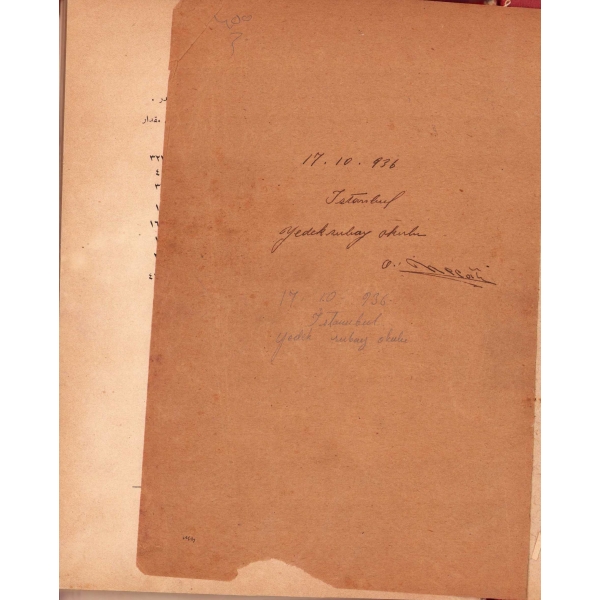 17.10.936
İstanbul
yedeksubay okulu
O. Necati
17 10 936
İstanbul
yedek subay okulu
در .
مقدار